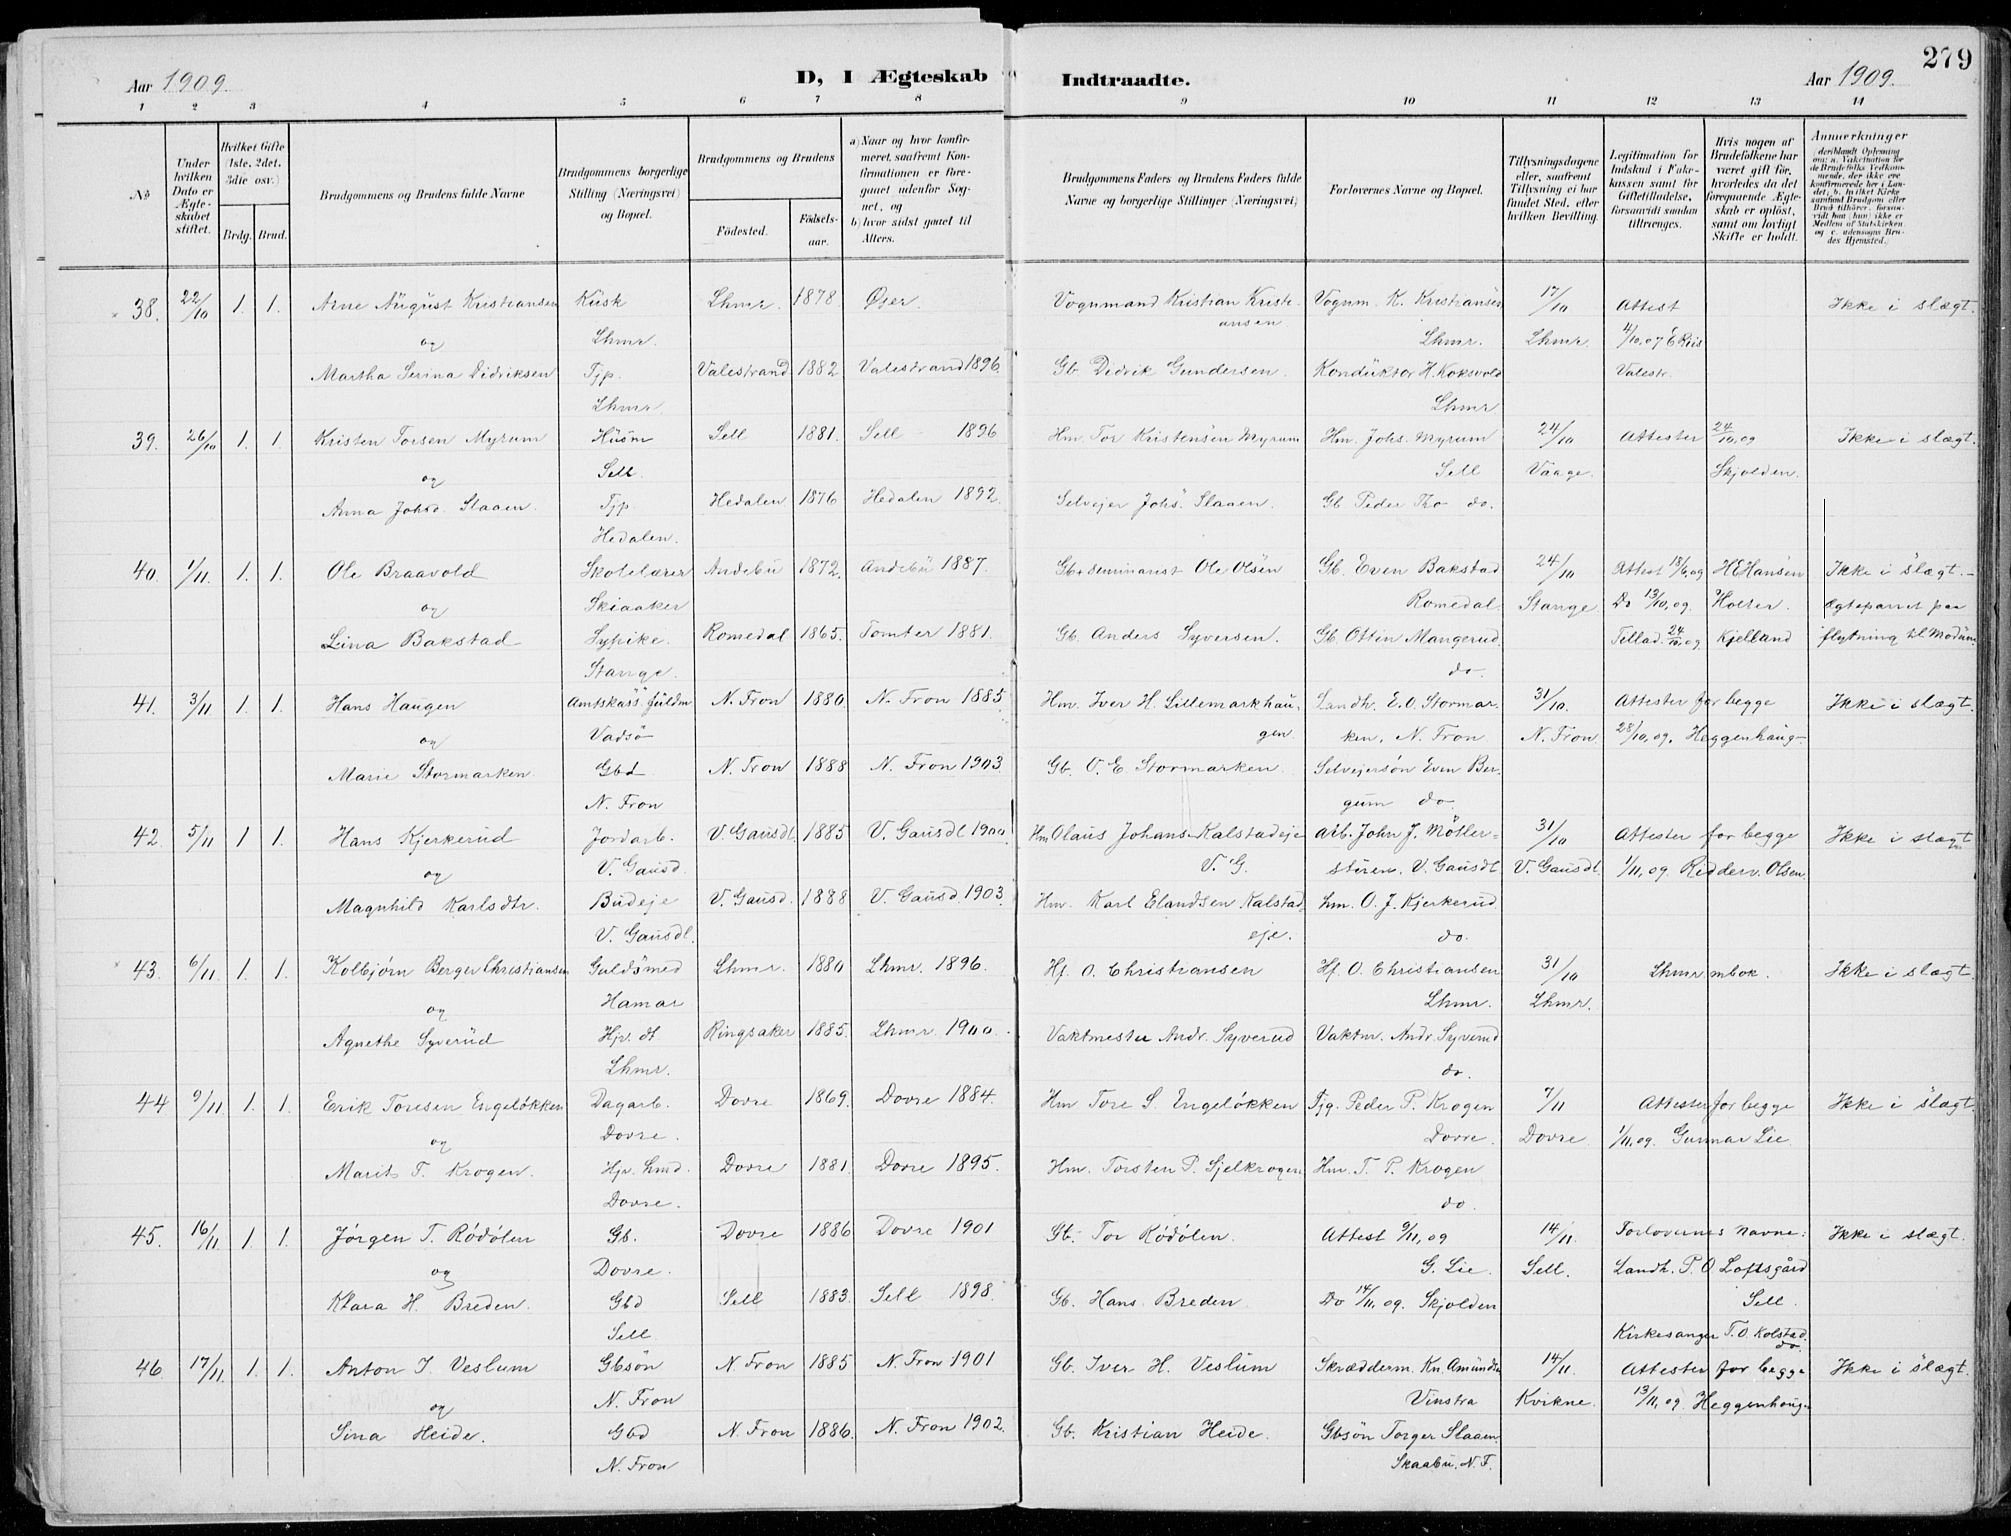 279
Aar 1909. D, I Ægteskab Indtraadte. Aar 1909.
1 2 3 4 5 6 7 8 9 10 11 12 13 14
No
Under hvilken Dato er Ægteskabet stiftet.
Hvilket Gifte (1ste, 2det, 3die osv.)
Brdg. Brud.
Brudgommens og Brudens fulde Navne
Brudgommens borgerlige Stilling (Næringsvei) og Bopæl.
Brudgommens og Brudens
Födested. Födselsaar.
a) Naar og hvor konfirmeret, saafremt Konfirmationen er foregaaet udenfor Sognet, og
b) hvor sidst gaaet til Alters.
Brudgommens Faders og Brudens Faders fulde Navne og borgerlige Stillinger (Næringsvei)
Forlovernes Navne og Bopæl.
Tillysningsdagene eller, saafremt Tillysning ei har fundet Sted, efter hvilken Bevilling.
Legitimation for Indskud i Enkekassen samt for Giftetilladelse, forsaavidt saadan tiltrænges.
Hvis nogen af Brudefolkene har været gift før, hvorledes da det foregaaende Ægteskab er oplöst, samt om lovligt Skifte er holdt.
Anmerkninger
38. 22/10 1. 1. Arne August Kristiansen Kusk Lhmr. 1878. Øier. Vognmand Kristian Kristi- Vognm. K. Kristiansen 17/10 Attest Ikke i slægt.
og Lhmr. ansen Lhmr. Lhmr. 4/10, 09
Martha Serina Didriksen Tjp. Valestrand 1882 Valestrand 1896. Gb. Didrik Gundersen. Konduktør H. Koksvold Valestr.
Lhmr. Lhmr
39. 26/10 1. 1. Kristen Torsen Myrum Husm Sell 1881. Sell 1896 Hm. Tor Kristensen Myrum Hm. Johs. Myrum 24/10 Attester 24/10,09 Ikke i slægt.
og Sell. Sell Vaage. Skjolden.
Anna Johsd. Slaaen. Tjp. Hedalen 1876 Hedalen 1892. Selvejer Johs. Slaaen. Gb. Peder Tho do.
Hedalen.
40. 1/11. 1. 1. Ole Braavold Skolelærer Andebu 1872. Andebu 1887. Gb + seminarist Ole Olsen Gb. Even Bakstad 24/10 Attest 18/6,09 Ikke i slægt.-
og Skiaaker Romedal. Stange. Do 13/10,09. Holter. Ægteparret paa
Lina Bakstad Sypike. Romedal 1865. Tomter 1881. Gb. Anders Syversen. Gb. Ottin Mangerud. Tillad. 24/10,09 Kjelland flytning til Modum.
Stange. do.
41. 3/11 1. 1. Hans Haugen Amtskass. fuldm N. Fron 1880. N. Fron 1885 Hm. Iver H. Lillemarkhau- Landh. E. O. Stormar- 31/10. Attester for begge Ikke i slægt.
og Vadsö gen. ken, N. Fron N. Fron. 28/10,09. Heggenhaug-
Marie Stormarken Gbd N. Fron 1888 N. Fron 1903. Gb. O. E Stormarken. Selvejersøn Even Ber-
N. Fron gum do.
42. 5/11 1 1. Hans Kjerkerud Jordarb. V. Gausdl. 1885 V. Gausdl 1900. Hm Olaus Johans. Kalstadeje arb. John J. Möller- 31/10 Attester for begge Ikke i slægt
og V. Gausd. V. G. stuen. V. Gausdl V. Gausdl. 1/11, 09. Redderv. Olsen
Magnhild Karlsdtr. Budeje V. Gausd. 1888 V. Gausd. 1903. Hm. Karl Elandsen Kalstad- hm. O. J. Kjerkerud
V. Gausdl. eje. do.
43. 6/11. 1. 1. Kolbjørn Berger Christiansen Guldsmed Lhmr. 1880 Lhmr. 1896. Hf. O. Christiansen Hf. O. Christiansen 31/10 Lhmr mbok. Ikke i slægt.
og Hamar Lhmr. Lhmr.
Agnethe Syverud Hjp. dt Ringsaker 1885. Lhmr. 1900. Vaktmester Andr. Syverud Vaktm. Andr. Syverud
Lhmr. do.
44 9/11 1. 1. Erik Toresen Engeløkken Dagarb. Dovre 1869. Dovre 1884. Hm Tore S. Engeløkken Tjg. Peder P. Krogen 7/11 Attester for begge Ikke i slægt.
og Dovre. Dovre. Dovre 1/11,09. Gunnar Lie.
Marit T. Krogen. Dovre 1881 Dovre 1895. Hm. Torsten P. Sjelkrogen. Hm. T. P. Krogen
Dovre. do.
45. 16/11 1. 1. Jørgen T. Rødølen Gb. Dovre 1886 Dovre 1901 Gb. Tor Rødølen. Attest 9/11,09 14/11. Forlovernes navne: Ikke i slægt.
og Dovre. G. Lie. Sell. Landh. P. O Loftsgård
Klara H. Breden. Gbd Sell 1883. Sell 1898. Gb. Hans Breden Do 14/11,09. Skjolden Sell.
Sell. Kirkesanger T. O. Kolstad. do
46. 17/11. 1. 1. Anton I. Veslum Gbsön N. Fron 1885 N. Fron 1901 Gb. Iver H. Veslum Skrædderm. Kn. Amundsen 14/11. Attester for begge Ikke i slægt.
og N. Fron Vinstra Kvikne. 13/11,09. Heggenhaug-
Sina Heide. Gbd N. Fron 1886. N. Fron 1902. Gb. Kristian Heide. Gbsön Torger Slaaen
N. Fron Skaabu. N. F.